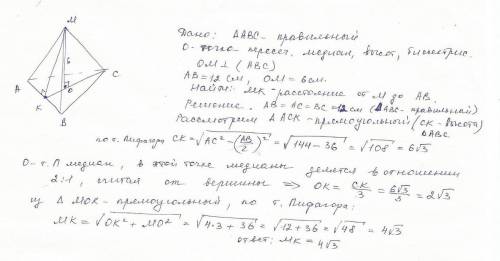 M
6
A
C
K
O
B
Дано: ΔABC - правильный
O - точка пересеч. медиан, высот, биссектрис.
OM ⊥ (ABC)
AB = 12 см, OM = 6 см.
Найти: MK - расстояние от M до AB.
Решение. AB = AC = BC = 12 см (ΔABC - правильный)
Рассмотрим ΔACK - прямоугольный (CK - высота) ΔABC.
по т. Пифагора CK = √(AC² - (AB/2)²) = √(144 - 36) = √108 = 6√3
O - т. П медиан, в этой точке медианы делятся в отношении
2:1, считая от вершины ⇒ OK = CK/3 = 6√3/3 = 2√3
из Δ MOK - прямоугольный, по т. Пифагора:
MK = √(OK² + MO²) = √(4·3 + 36) = √(12 + 36) = √48 = 4√3
ответ: MK = 4√3